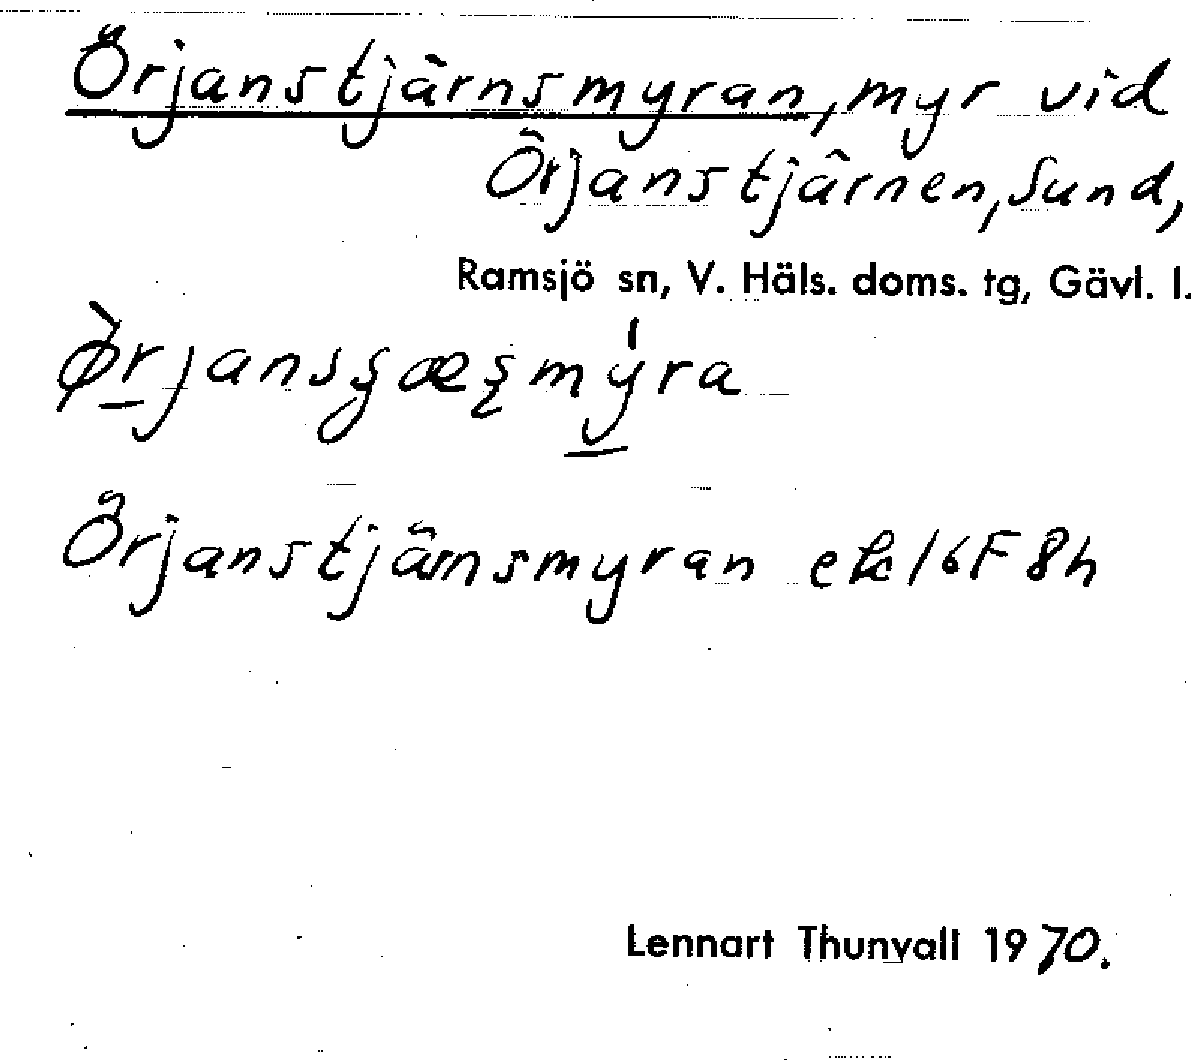 Örjanstjärnsmyran, myr vid
Örjanstjärnen, Sund,
Ramsjö sn, V. Häls. doms. tg, Gävl. l.
Örjanstjärnsmyran ek 16F 8h
Lennart Thunvall 1970.